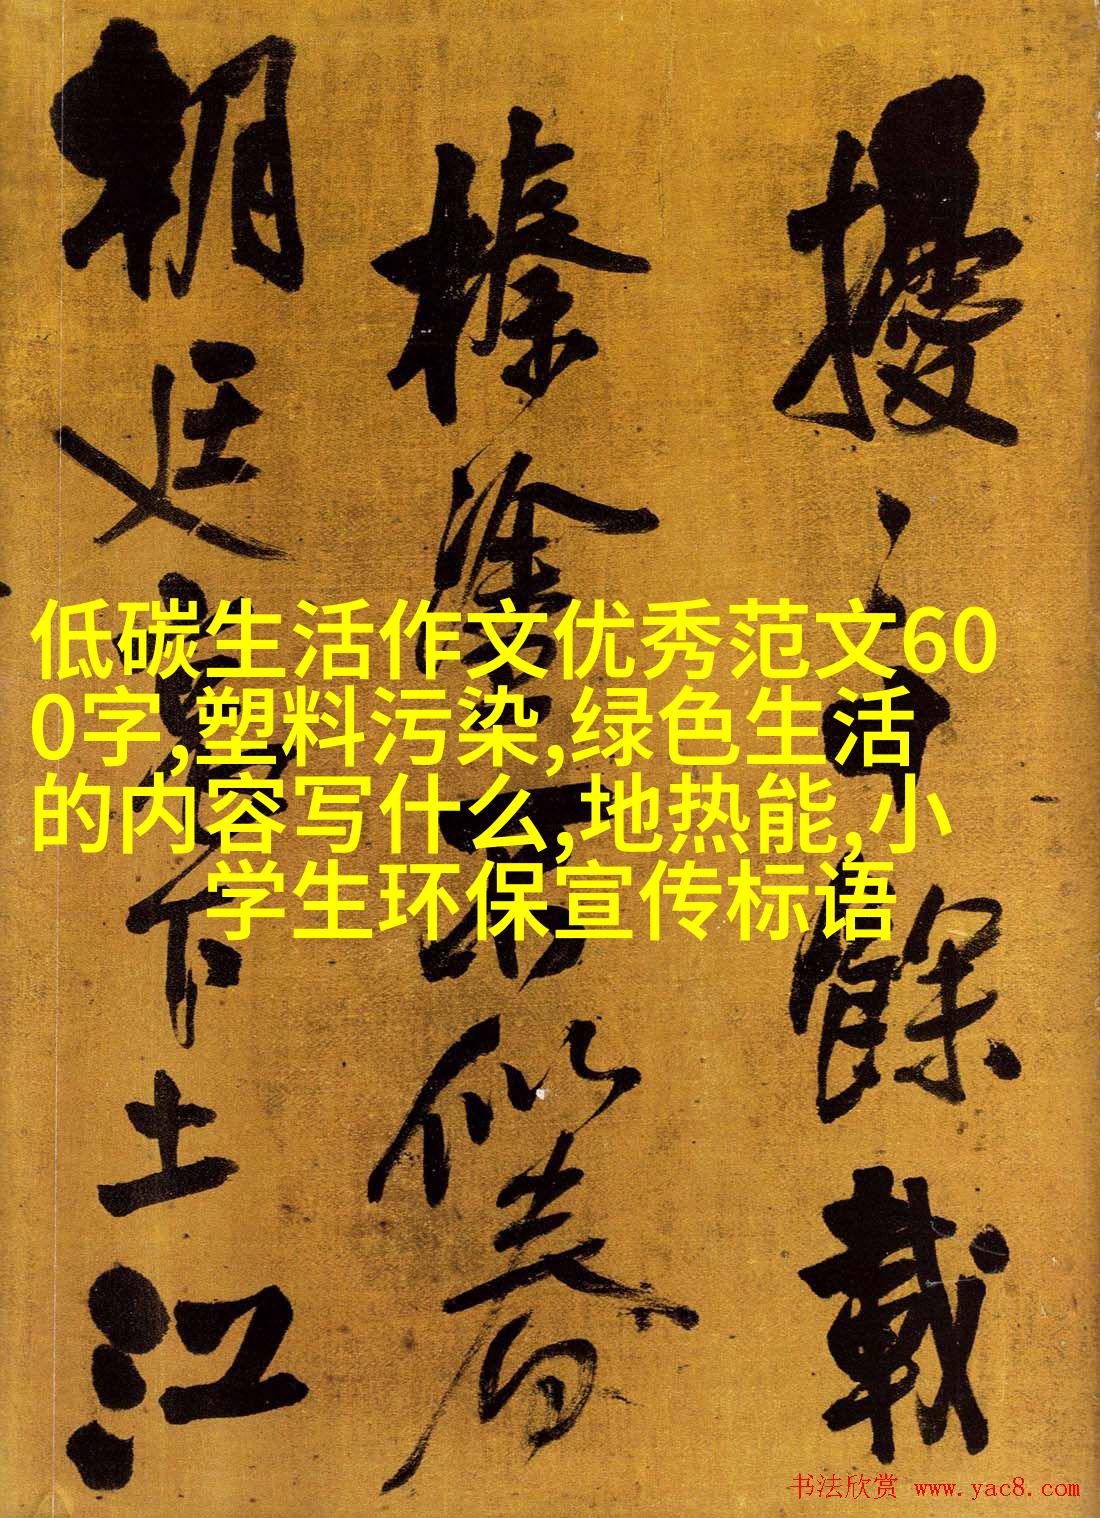 低碳生活作文优秀范文60
0字,塑料污染,绿色生活
的内容写什么,地热能,小
学生环保宣传标语
擾 餘載
榛塗
朝廷 下土江
书法欣赏 www.yac8.com